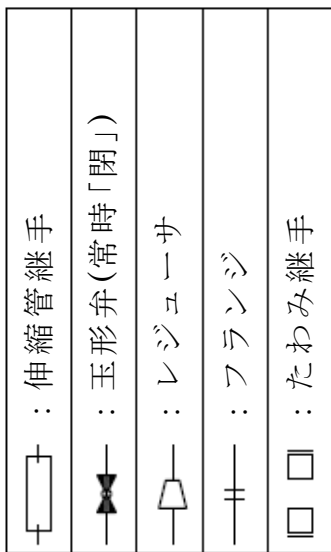 ：伸縮管継手
：玉形弁(常時「閉」)
：レジューサ
：フランジ
：たわみ継手